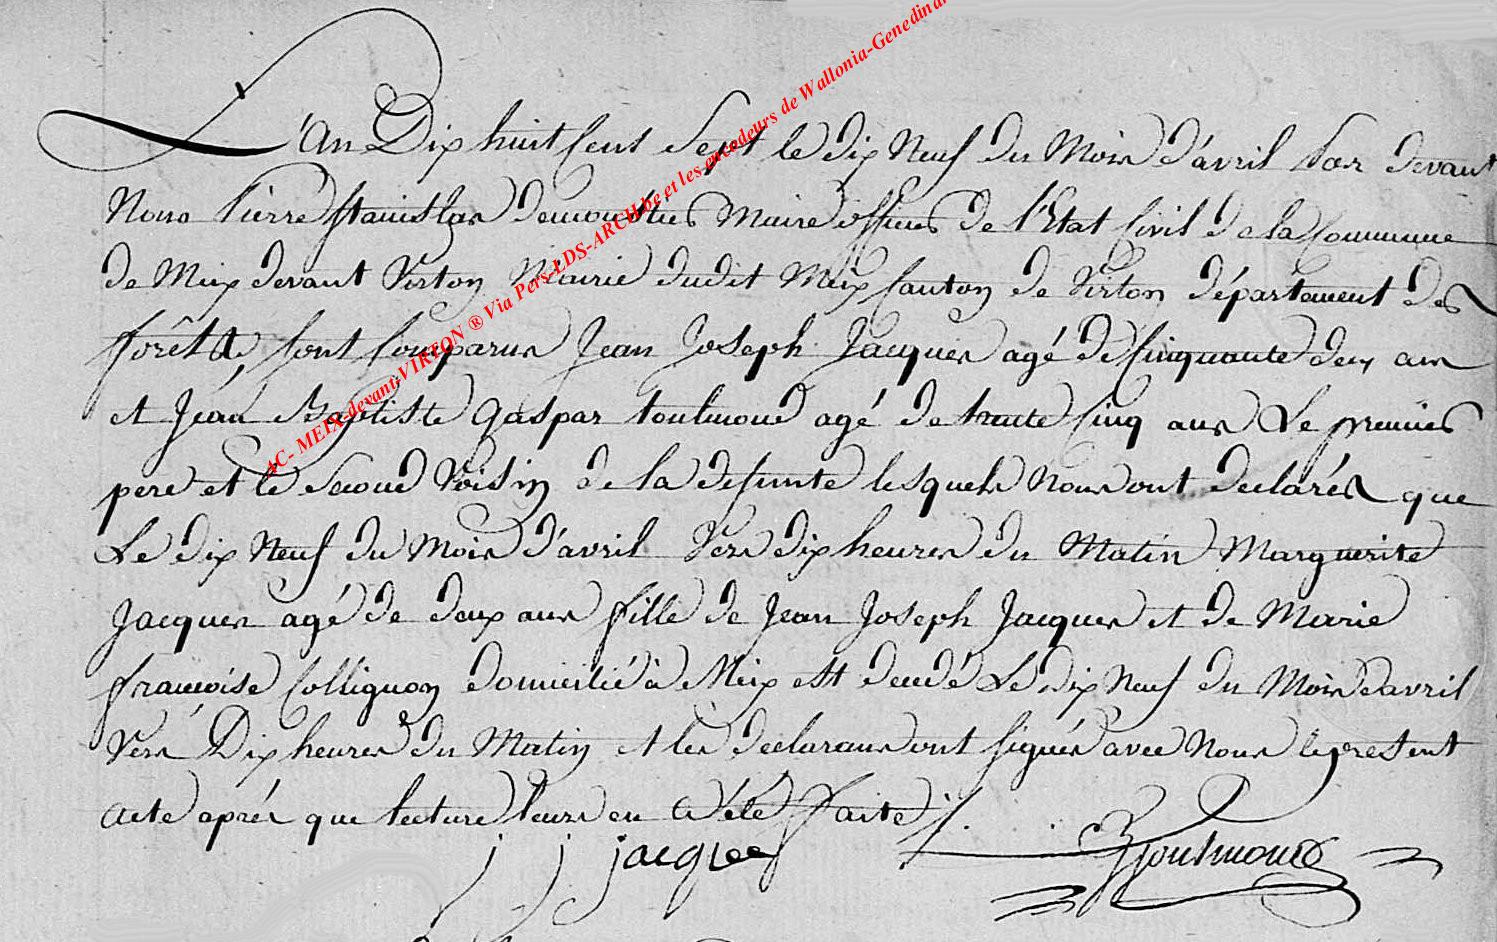 L'an Dix huit Cent Sept le dix Neuf du Mois d'avril Par devant
Nous Pierre Stanislas demoustier Maire officier de l'Etat Civil de la Commune
de Meix devant Virton Mairie dudit Meix Canton de Virton département des
forêtts, sont Comparus Jean Joseph Jacques agé de Cinquante deux ans
et Jean Baptiste Gaspar toulmond agé de trente Cinq ans Le premier
pere et le second Voisin de la defunte lesquels Nous ont declarés que
Le dix Neuf du Mois d'avril Vers dix heures du Matin Marguerite
Jacques agé de deux ans fille de Jean Joseph Jacques et de Marie
françoise Collignon domicilié à Meix est decedé Le dix Neuf du Mois davril
Vers Dix heures du Matin et les declarans ont signés avec Nous le present
acte aprés que lecture leurs en a été faite ./.
j j jacques
Toulmond
AC- MEIX-devant-VIRTON ® Via Pers-LDS-ARCH.be et les encodeurs de Wallonia-Genedinar